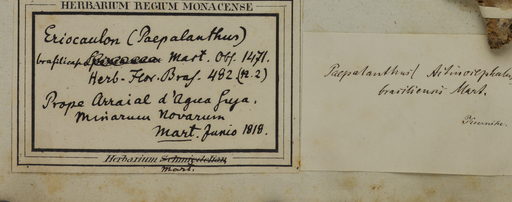 HERBARIUM REGIUM MONACENSE
Eriocaulon (Paepalanthus)
brasilicus Mart. Obs. 1471.
Herb. Flor. Bras. 482 (n. 2)
Prope Arraial d'Agua Suja.
Minarum Novarum
Mart. Junio 1818.
Herbarium
Mart.
Paepalanthus (Actinocephalus)
brasiliensis Mart.
Körnicke.